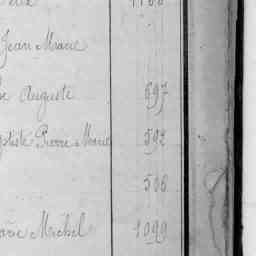 Jean Marie
Auguste 697
Pierre Marie 592
506
Michel 1099